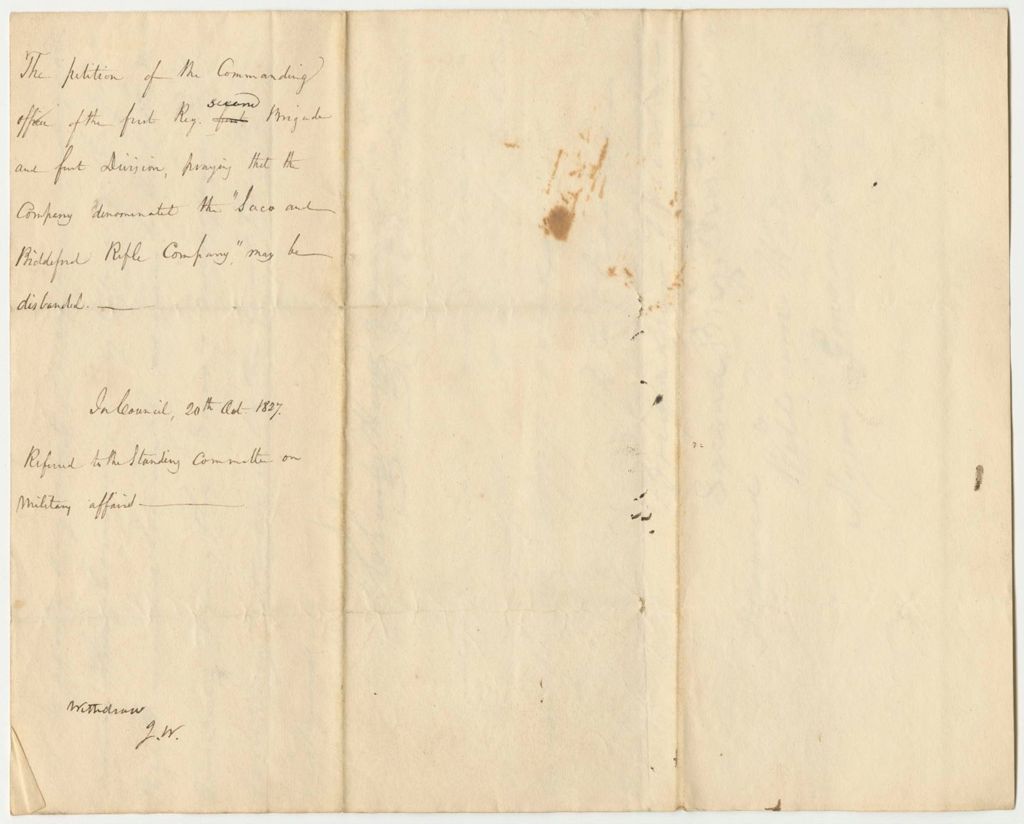 The petition of the Commanding
officer of the first Reg. second first Brigade
and first Division, praying that the
Company denominated the "Saco and
Biddeford Rifle Company," may be
disbanded. —
In Council, 20th Oct. 1827.
Referred to the Standing Committee on
Military affairs —
Withdraw
J. W.